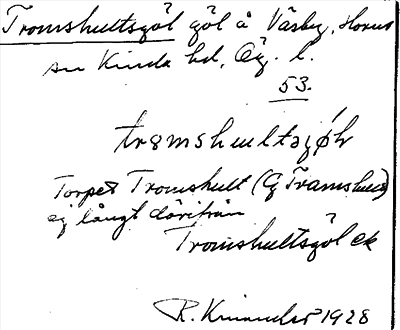 Tromshultsgöl göl å Väsby, Horns
sn Kinda hd, Ög. l.
53.
tromshultsjøl
Torpet Tromshult (Gg Tramshult)
ej långt därifrån
Tromshultsgöl ek
R. Kinander 1928